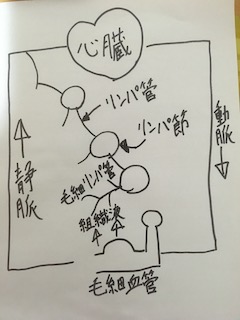 心臓
リンパ管
リンパ節
動脈
静脈
毛細リンパ管
組織液
毛細血管